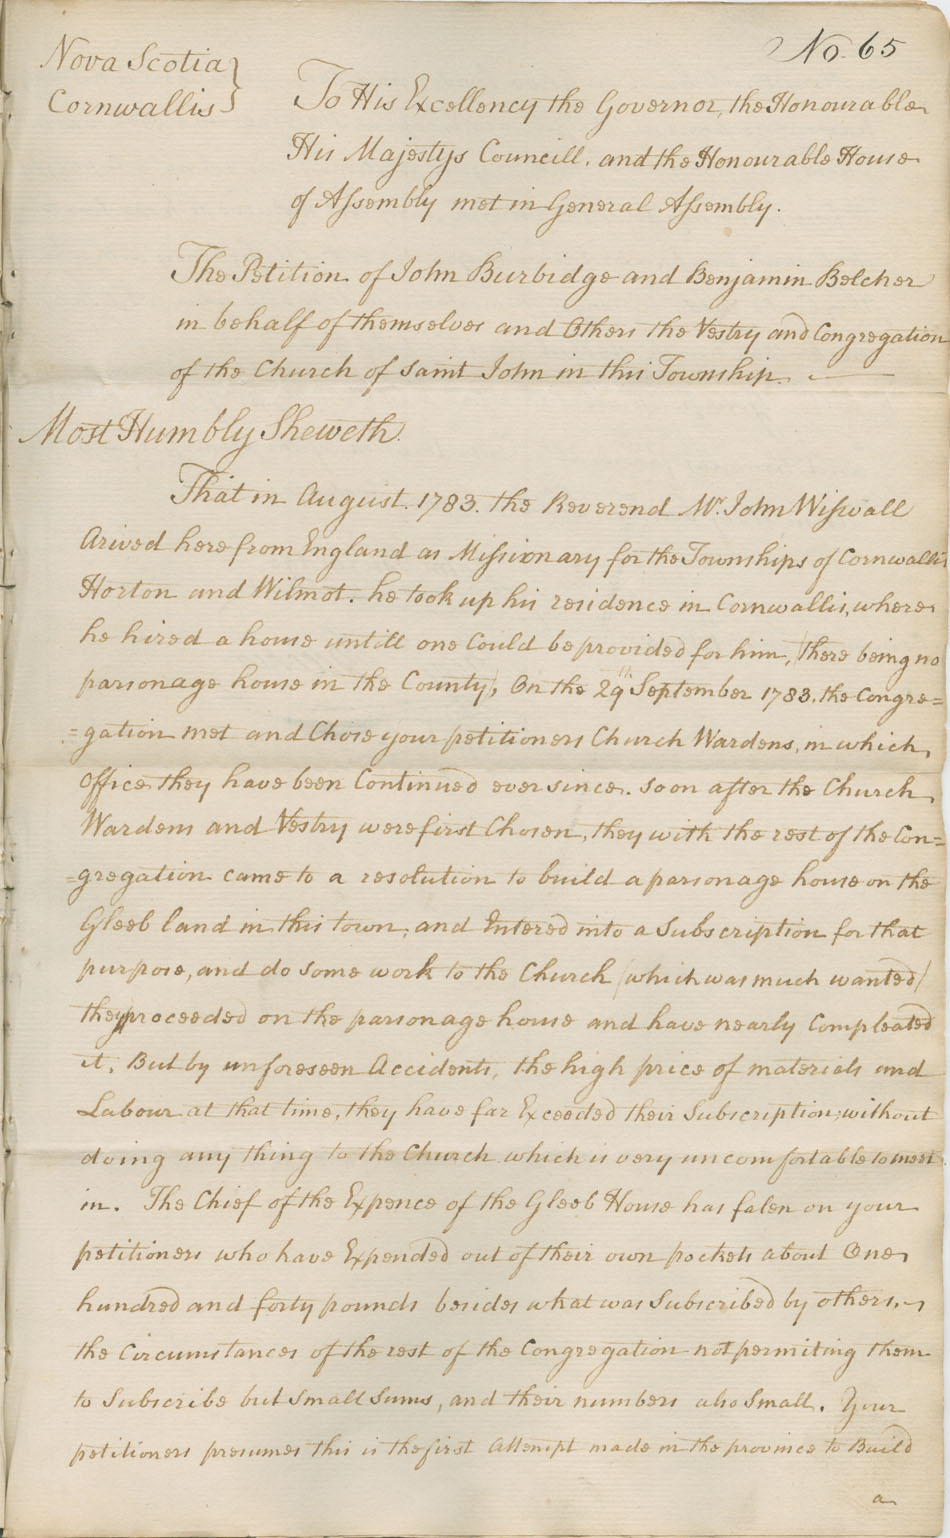 No. 65
Nova Scotia }
Cornwallis }
To His Excellency the Governor, the Honourable
His Majestys Councill, and the Honourable House
of Assembly met in General Assembly.
The Petition of John Burbidge and Benjamin Belcher
in behalf of themselves and Others the Vestry and Congregation
of the Church of Saint John in this Township.
Most Humbly Sheweth.
That in August. 1783. the Reverend Mr. John Wiswall
Arived here from England as Missionary for the Townships of Cornwallis
Horton and Wilmot. he took up his residence in Cornwallis, where
he hired a house untill one Could be provided for him, (there being no
parsonage house in the County), On the 29th September 1783. the Congre=
=gation met and Chose your petitioners Church Wardens, in which
Office they have been Continued ever since. Soon after the Church
Wardens and Vestry were first Chosen, they with the rest of the Con=
=gregation came to a resolution to build a parsonage house on the
Gleeb land in this town, and Entered into a Subscription for that
purpose, and do Some work to the Church (which was much wanted)
they proceeded on the parsonage house and have nearly Compleated
it. But by unforeseen Accidents, the high price of materials and
Labour at that time, they have far Exceeded their Subscription, without
doing any thing to the Church which is very uncomfortable to meet
in. The Chief of the Expence of the Gleeb House has falen on your
petitioners who have Expended out of their own pockets about One
hundred and forty pounds besides what was Subscribed by others,
the Circumstances of the rest of the Congregation not permiting them
to Subscribe but Small Sums, and their numbers also Small. Your
petitioners presumes this is the first Attempt made in the province to Build
a